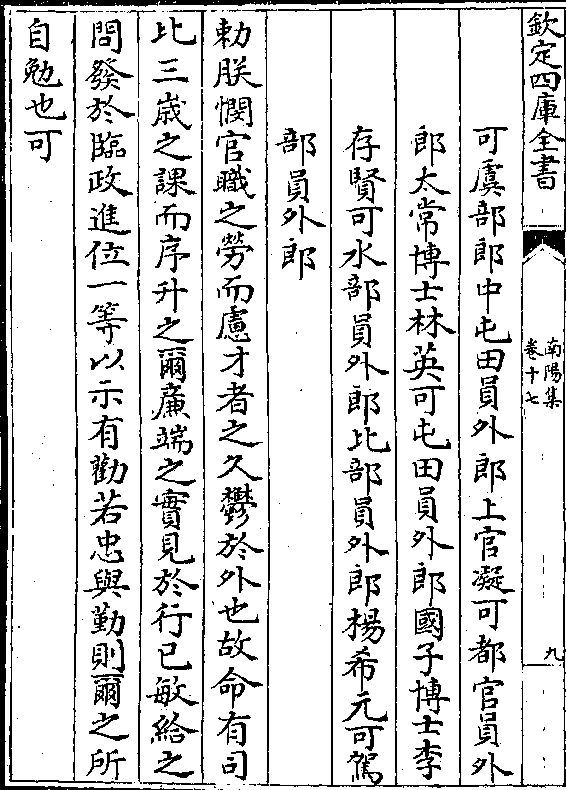 欽定四庫全書
南陽集
卷十七
九
可虞部郎中屯田員外郎上官凝可都官員外
郎太常博士林英可屯田員外郎國子博士李
存賢可水部員外郎比部員外郎楊希元可駕
部員外郎
勅朕憫官職之勞而慮才者之久鬱於外也故命有司
比三歳之課而序升之爾廉端之實見於行已敏給之
問發於臨政進位一等以示有勸若忠與勤則爾之所
自勉也可